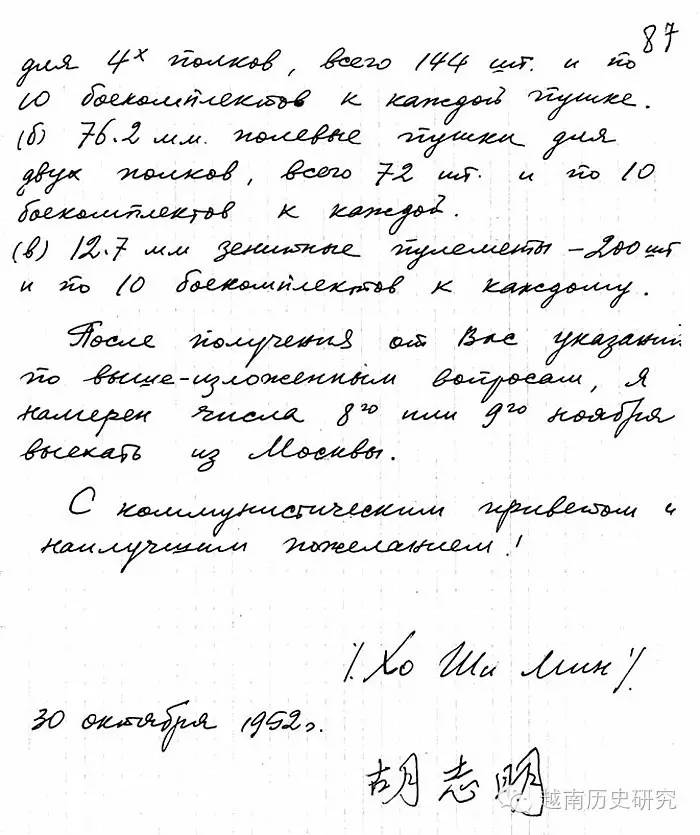 87
для 4х полков, всего 144 шт. и по
10 боекомплектов к каждой пушке.
(б) 76.2 мм. полевые пушки для
двух полков, всего 72 шт. и по 10
боекомплектов к каждой.
(в) 12.7 мм зенитные пулеметы – 200 шт
и по 10 боекомплектов к каждому.
После получения от Вас указаний
по выше-изложенным вопросам, я
намерен числа 8го или 9го ноября
выехать из Москвы.
С коммунистическим приветом и
наилучшим пожеланием!
/. Хо Ши Мин ./
30 октября 1952 г.
胡志明
越南历史研究